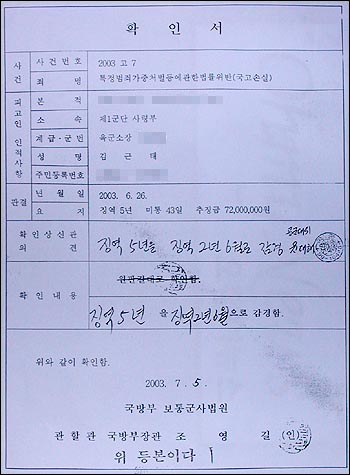 확 인 서
사건
사 건 번 호
2003 고 7
죄 명
특정범죄가중처벌등에관한법률위반(국고손실)
피고인 인적사항
본 적
소 속
제1군단 사령부
계급·군번
육군소장
성 명
김 근 태
주민등록번호
판결
년 월 일
2003. 6.26.
요 지
징역 5년 미통 43일 추징금 72,000,000원
확인상신관 의 견
징역 5년을 징역 2년 6월로 감경
확 인 내 용
원판결대로 확인함.
징역 5년 을 징역 2년 6월 으로 감경함.
위와 같이 확인함.
2003. 7. 5.
국방부 보통군사법원
관 할 관 국방부장관 조 영 길 (인)
위 등본이다